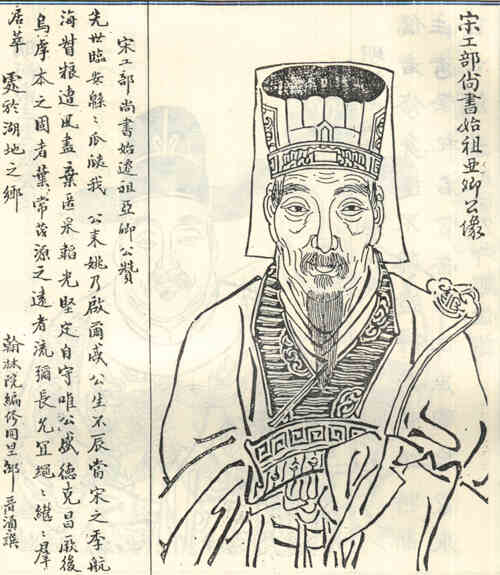 宋工部尚書始祖亞卿公像
宋工部尚書始遷祖亞卿公贊
先世臨安緜緜瓜瓞我 公來姚乃啟爾盛公生不辰當宋之季航
海督粮遭風盡棄匿采韜光堅定自守唯公盛德克昌厥後
烏虖本之固者葉常茂源之遠者流彌長允宜繩繩繼繼羣
居萃 處於湖地之鄉
翰林院編修同里邵晉涵譔